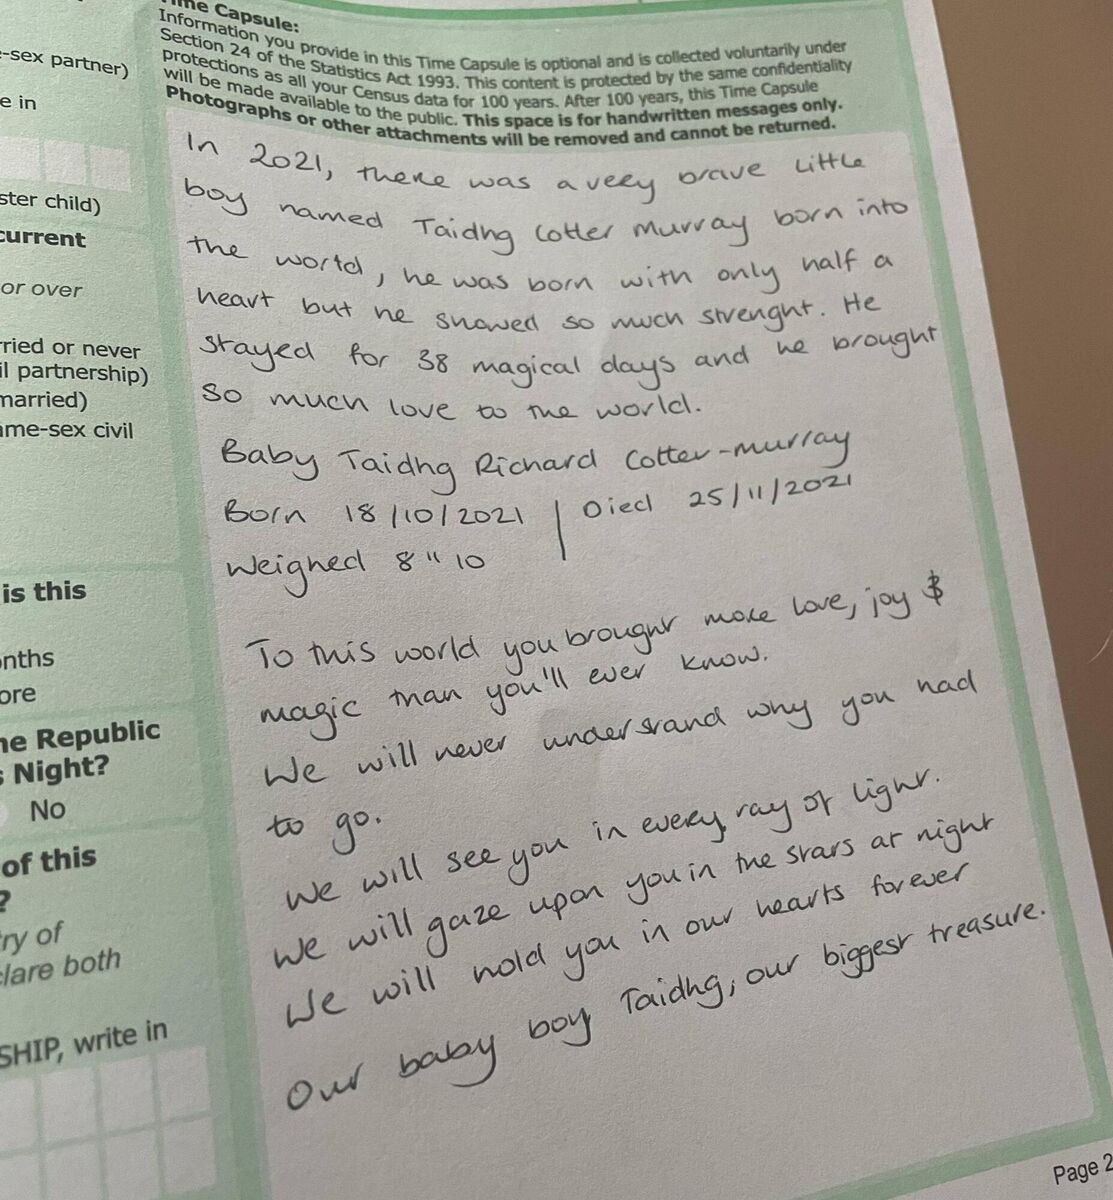 Time Capsule:
Information you provide in this Time Capsule is optional and is collected voluntarily under
Section 24 of the Statistics Act 1993. This content is protected by the same confidentiality
protections as all your Census data for 100 years. After 100 years, this Time Capsule
will be made available to the public. This space is for handwritten messages only.
Photographs or other attachments will be removed and cannot be returned.
In 2021, there was a very brave little
boy named Taidhg Cotter Murray born into
the world, he was born with only half a
heart but he showed so much strenght. He
stayed for 38 magical days and he brought
so much love to the world.
Baby Taidhg Richard Cotter-Murray
Born 18/10/2021 | Died 25/11/2021
Weighed 8"10
To this world you brought more love, joy &
magic than you'll ever know.
We will never understand why you had
to go.
We will see you in every ray of light.
We will gaze upon you in the stars at night
We will hold you in our hearts forever
Our baby boy Taidhg, our biggest treasure.
Page 2
-sex partner)
e in
ster child)
current
or over
rried or never
il partnership)
married)
ame-sex civil
is this
onths
ore
he Republic
s Night?
No
of this
?
ry of
clare both
SHIP, write in